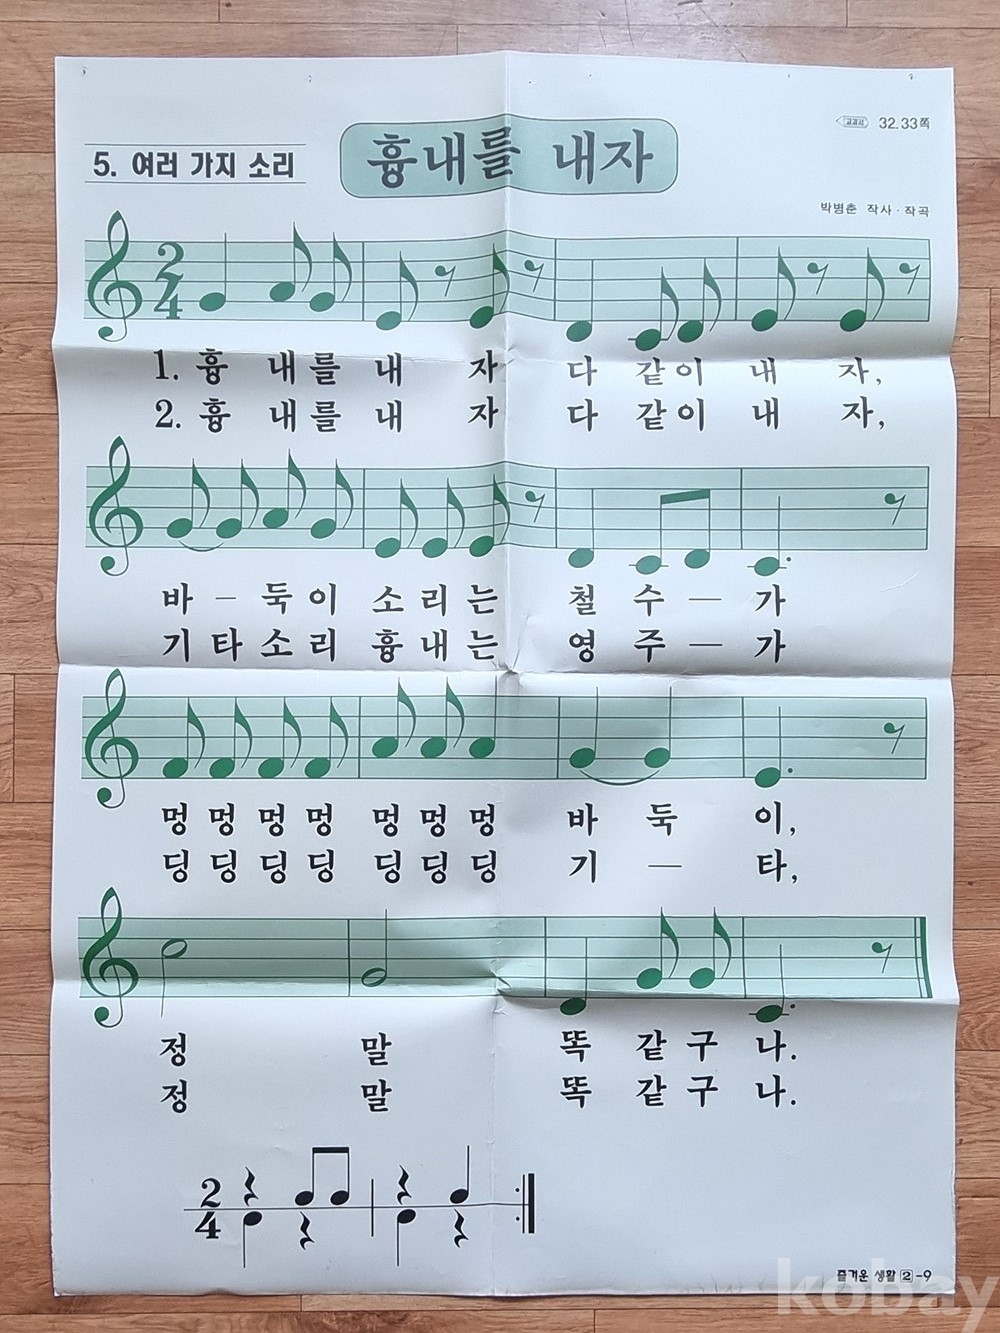 교과서 32.33쪽
5. 여러 가지 소리
흉내를 내자
박병춘 작사·작곡
2
4
1. 흉 내를 내 자 다 같이 내 자,
2. 흉 내를 내 자 다 같이 내 자,
바 – 둑이 소리는 철 수 – 가
기타소리 흉내는 영 주 – 가
멍멍멍멍 멍멍멍 바 둑 이,
딩딩딩딩 딩딩딩 기 – 타,
정 말 똑 같구 나.
정 말 똑 같구 나.
2
4
즐거운 생활 2-9
kobay